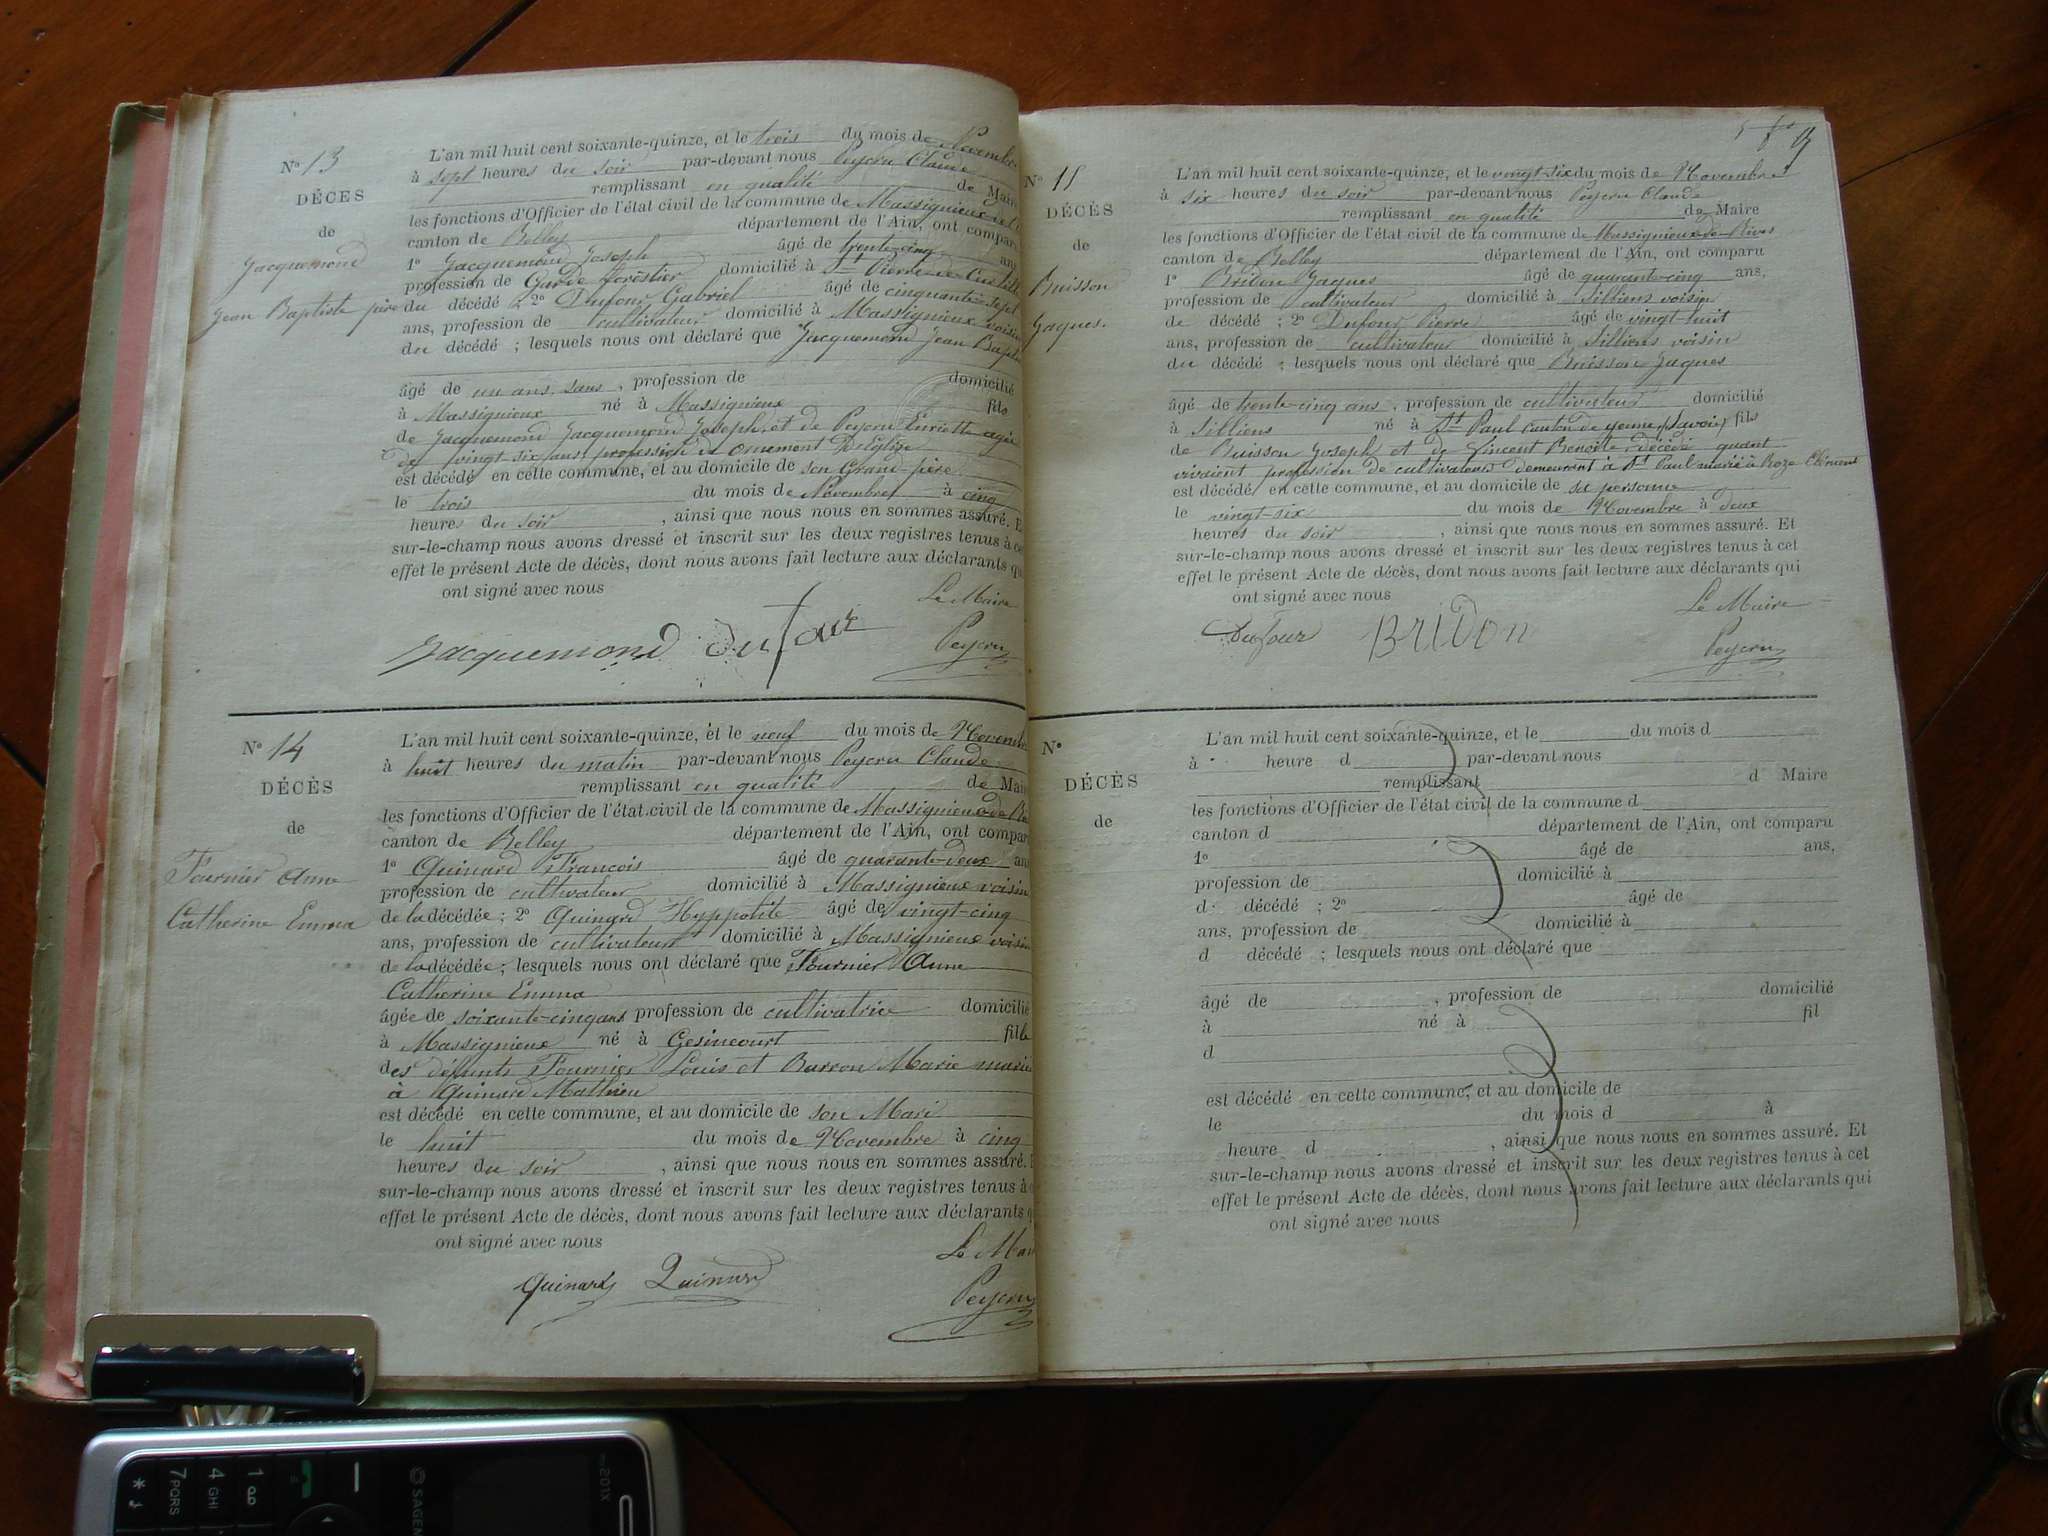 N° 13
DÉCES
de
Jacquemond
Jean Baptiste père
L'an mil huit cent soixante-quinze, et le trois du mois de Novembre
à sept heures du soir par-devant nous Peycru Claude
remplissant en qualité de Mair
les fonctions d'Officier de l'état civil de la commune de Massignieux
canton de Belley département de l'Ain, ont compar
1° Jacquemond Joseph âgé de trente-cinq ans
profession de Garde forestier domicilié à St Pierre de Curtille
du décédé 2° Dufour Gabriel âgé de cinquante-sept
ans, profession de cultivateur domicilié à Massignieux voisin
du décédé ; lesquels nous ont déclaré que Jacquemond Jean Bapti
âgé de un ans sans , profession de domicilié
à Massignieux né à Massignieux fils
de Jacquemond Jacquemond Joseph et de Peycru Euriette agée
de vingt-six ans profession d ornement D'Eglise
est décédé en cette commune, et au domicile de son Grand-père
le trois du mois de Novembre à cinq
heures du soir , ainsi que nous nous en sommes assuré. E
sur-le-champ nous avons dressé et inscrit sur les deux registres tenus à cet
effet le présent Acte de décès, dont nous avons fait lecture aux déclarants qu
ont signé avec nous
Le Maire
Jacquemond Dufour Peycru
N° 14
DÉCÈS
de
Fournier Anne
Catherine Emma
L'an mil huit cent soixante-quinze, et le neuf du mois de Novembre
à huit heures du matin par-devant nous Peycru Claude
remplissant en qualité de Mair
les fonctions d'Officier de l'état.civil de la commune de Massignieux de Ri
canton de Belley département de l'Ain, ont compar
1° Quinard François âgé de quarante-deux an
profession de cultivateur domicilié à Massignieux voisin
de la décédée ; 2° Quinard Hyppolite âgé de vingt-cinq
ans, profession de cultivateur domicilié à Massignieux voisin
de la décédée ; lesquels nous ont déclaré que Fournier Anne
Catherine Emma
âgée de soixante-cinq ans profession de cultivatrice domicilié
à Massignieux né à Gesincourt fille
des défunts Fournier Louis et Barron Marie mariée
à Quinard Mathieu
est décédé en cette commune, et au domicile de son Mari
le huit du mois de Novembre à cinq
heures du soir , ainsi que nous nous en sommes assuré. E
sur-le-champ nous avons dressé et inscrit sur les deux registres tenus à c
effet le présent Acte de décès, dont nous avons fait lecture aux déclarants q
ont signé avec nous
Le Mai
Quinard Quinard Peycru
N° 15
DÉCÈS
de
Buisson
Jaques.
L'an mil huit cent soixante-quinze, et le vingt-six du mois de Novembre
à six heures du soir par-devant nous Peycru Claude
remplissant en qualité de Maire
les fonctions d'Officier de l'état civil de la commune de Massignieux de Rives
canton de Belley département de l'Ain, ont comparu
1° Bridon Jaques âgé de quarante-cinq ans,
profession de cultivateur domicilié à Silliens voisin
de décédé ; 2° Dufour Pierre âgé de vingt-huit
ans, profession de cultivateur domicilié à Silliens voisin
du décédé ; lesquels nous ont déclaré que Buisson Jaques
âgé de trente-cinq ans , profession de cultivateur domicilié
à Silliens né à St Paul canton de yenne (Savoie) fils
de Buisson Joseph et de Vincent Benoite décédé quant
vivaient profession de cultivateurs demeurant à St Paul marié à Roze Clément
est décédé en cette commune, et au domicile de sa personne
le vingt-six du mois de Novembre à deux
heures du soir , ainsi que nous nous en sommes assuré. Et
sur-le-champ nous avons dressé et inscrit sur les deux registres tenus à cet
effet le présent Acte de décès, dont nous avons fait lecture aux déclarants qui
ont signé avec nous
Le Maire
Dufour BRIDON Peycru
N°
DÉCÈS
de
L'an mil huit cent soixante-quinze, et le du mois d
à heure d par-devant nous
remplissant d Maire
les fonctions d'Officier de l'état civil de la commune d
canton d département de l'Ain, ont comparu
1° âgé de ans,
profession de domicilié à
d décédé ; 2° âgé de
ans, profession de domicilié à
d décédé ; lesquels nous ont déclaré que
âgé de , profession de domicilié
à né à fil
d
est décédé en cette commune, et au domicile de
le du mois d à
heure d , ainsi que nous nous en sommes assuré. Et
sur-le-champ nous avons dressé et inscrit sur les deux registres tenus à cet
effet le présent Acte de décès, dont nous avons fait lecture aux déclarants qui
ont signé avec nous
my201X
SAGEM
1
4 GHI
7 PQRS
*